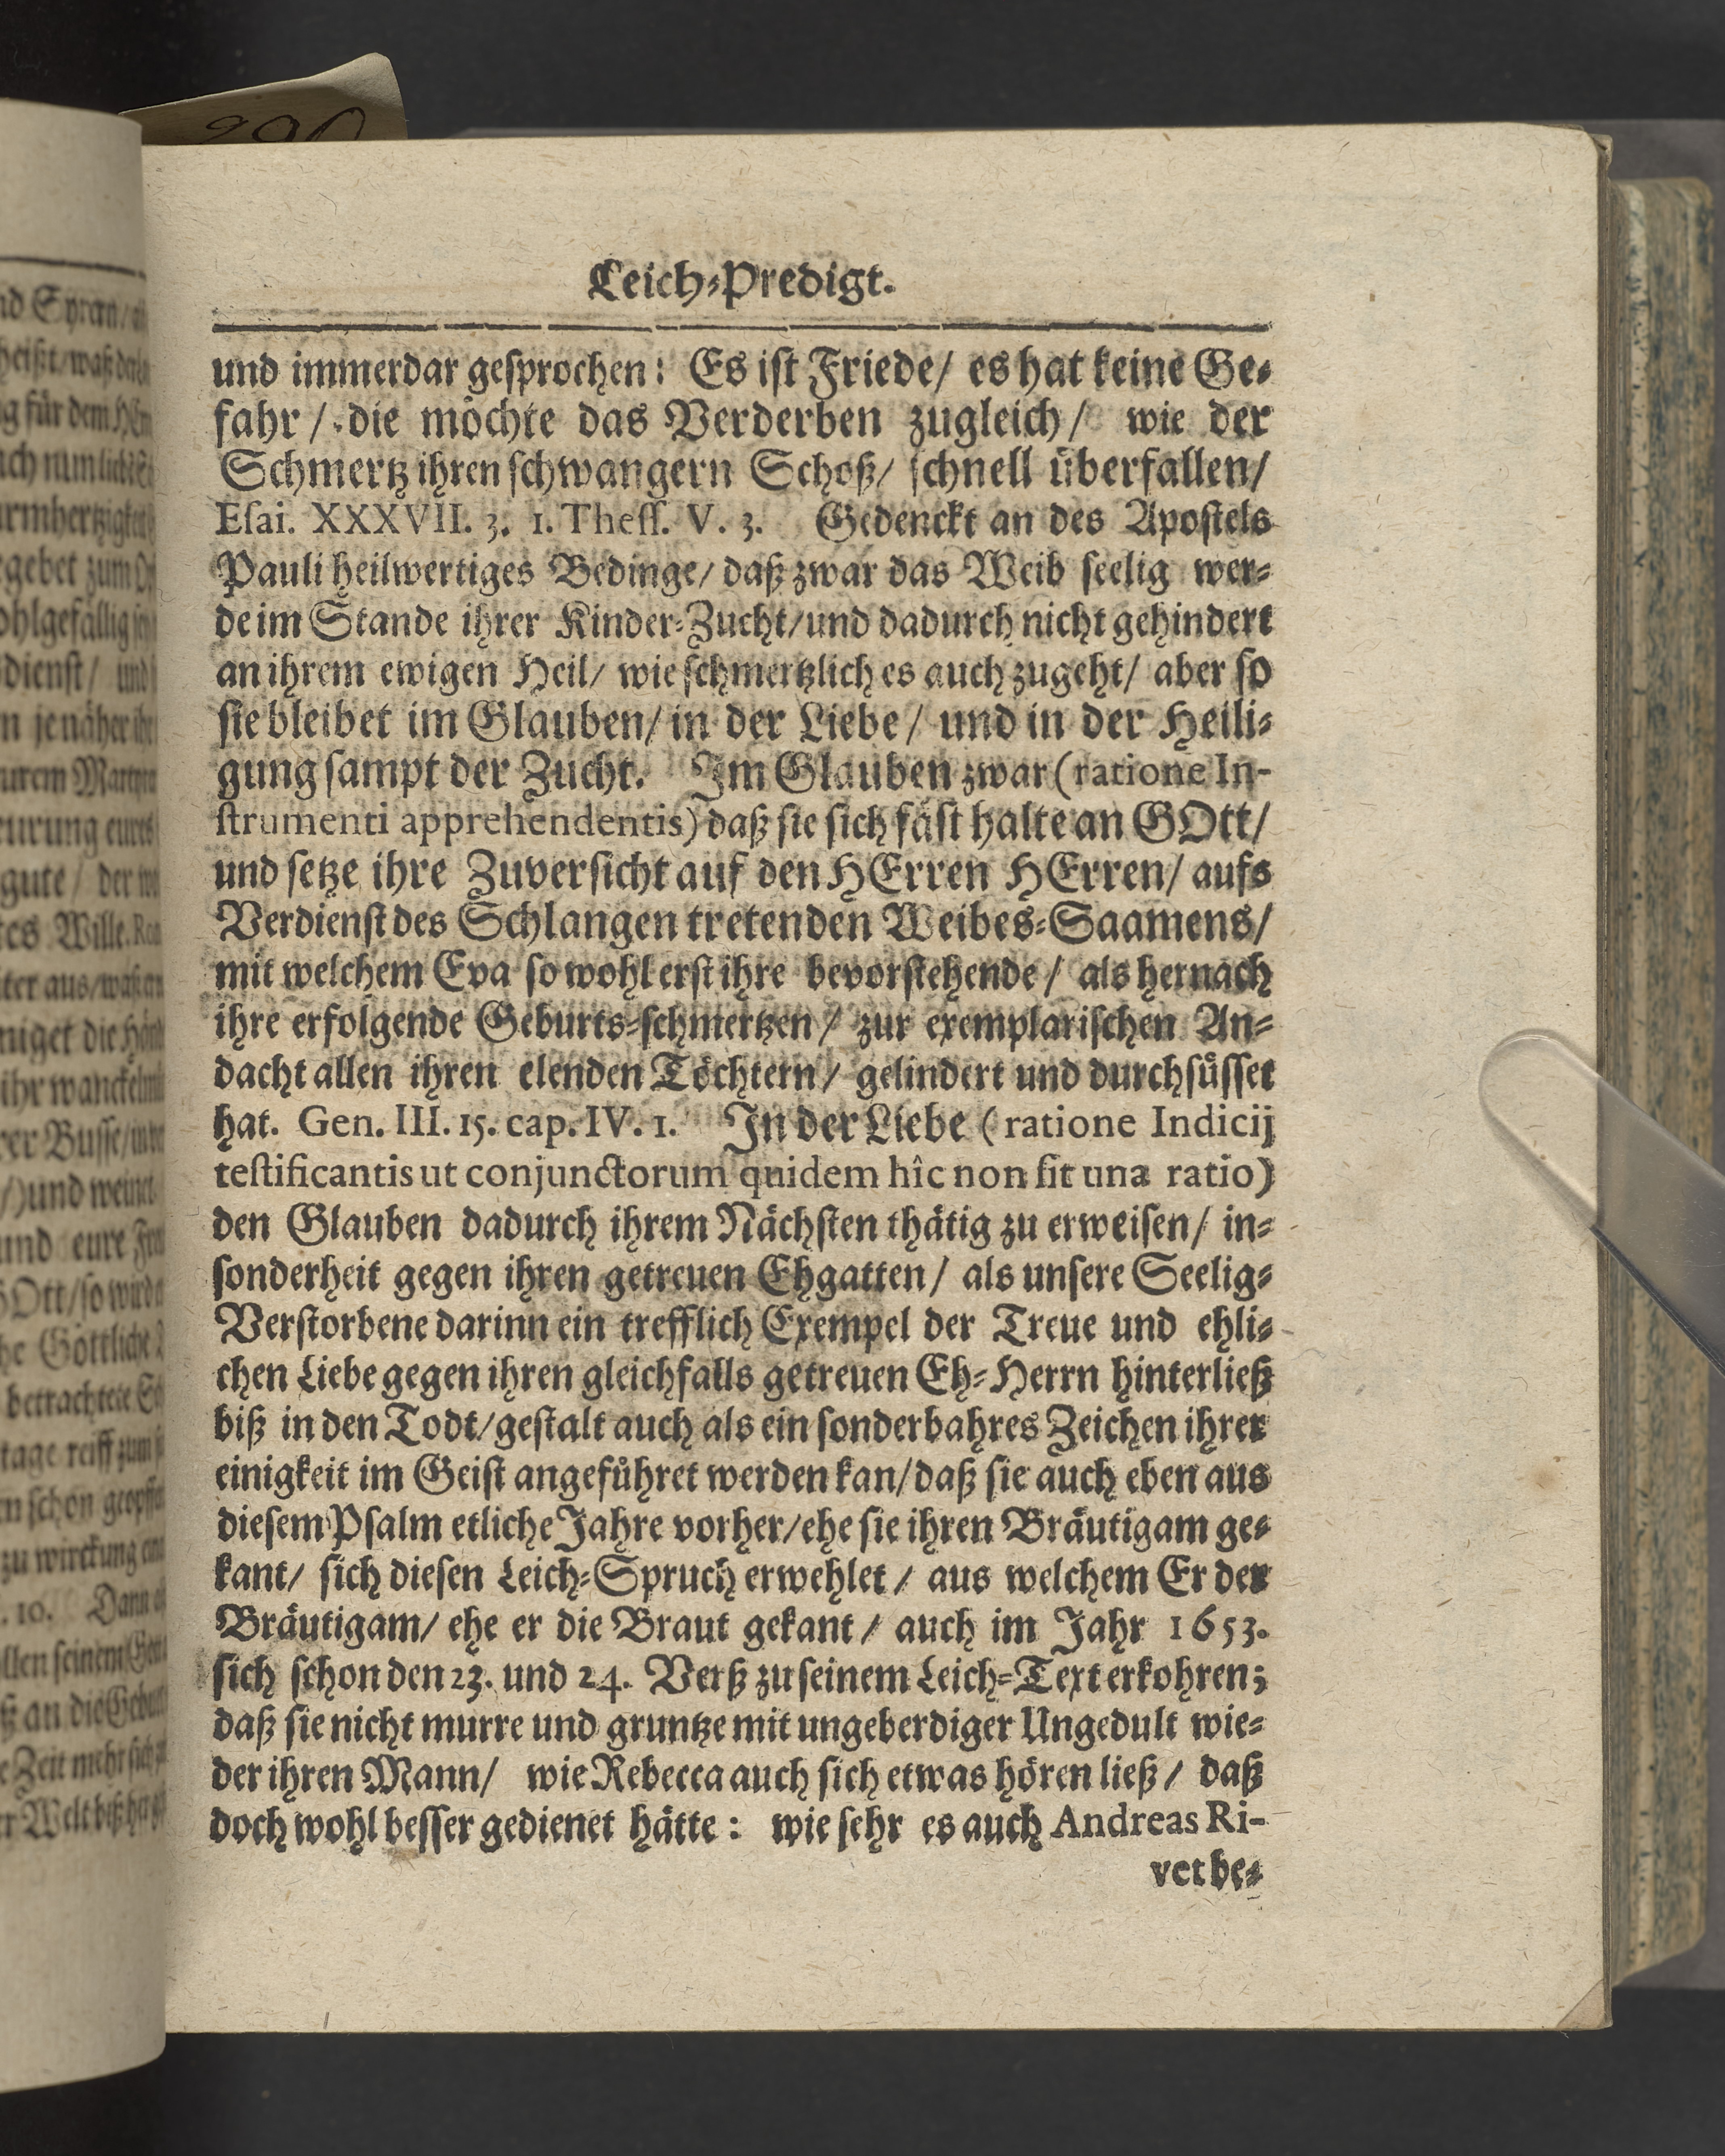 Leich-Predigt.
und immerdar gesprochen: Es ist Friede/ es hat keine Ge-
fahr / die möchte das Verderben zugleich/ wie der
Schmertz ihren schwangern Schoß/ schnell überfallen/
Esai. XXXVII. 3. 1. Thess. V. 3. Gedenckt an des Apostels
Pauli heilwertiges Bedinge/ daß zwar das Weib seelig wer-
de im Stande ihrer Kinder-Zucht/und dadurch nicht gehindert
an ihrem ewigen Heil/ wie schmertzlich es auch zugeht/ aber so
sie bleibet im Glauben/ in der Liebe/ und in der Heili-
gung sampt der Zucht. Im Glauben zwar (ratione In-
strumenti apprehendentis) daß sie sich fäst halte an GOtt/
und setze ihre Zuversicht auf den HErren HErren/ aufs
Verdienst des Schlangen tretenden Weibes-Saamens/
mit welchem Eva so wohl erst ihre bevorstehende / als hernach
ihre erfolgende Geburts-schmertzen/ zur exemplarischen An-
dacht allen ihren elenden Töchtern/ gelindert und durchsüsset
hat. Gen. III. 15. cap. IV. 1. In der Liebe (ratione Indicij
testificantis ut conjunctorum quidem hîc non sit una ratio)
den Glauben dadurch ihrem Nächsten thätig zu erweisen/ in-
sonderheit gegen ihren getreuen Ehgatten/ als unsere Seelig-
Verstorbene darinn ein trefflich Exempel der Treue und ehli-
chen Liebe gegen ihren gleichfalls getreuen Eh-Herrn hinterließ
biß in den Todt/gestalt auch als ein sonderbahres Zeichen ihrer
einigkeit im Geist angeführet werden kan/daß sie auch eben aus
diesem Psalm etliche Jahre vorher/ehe sie ihren Bräutigam ge-
kant/ sich diesen Leich-Spruch erwehlet/ aus welchem Er der
Bräutigam/ ehe er die Braut gekant/ auch im Jahr 1653.
sich schon den 23. und 24. Verß zu seinem Leich-Text erkohren;
daß sie nicht murre und gruntze mit ungeberdiger Ungedult wie-
der ihren Mann/ wie Rebecca auch sich etwas hören ließ/ daß
doch wohl besser gedienet hätte: wie sehr es auch Andreas Ri-
vet be-